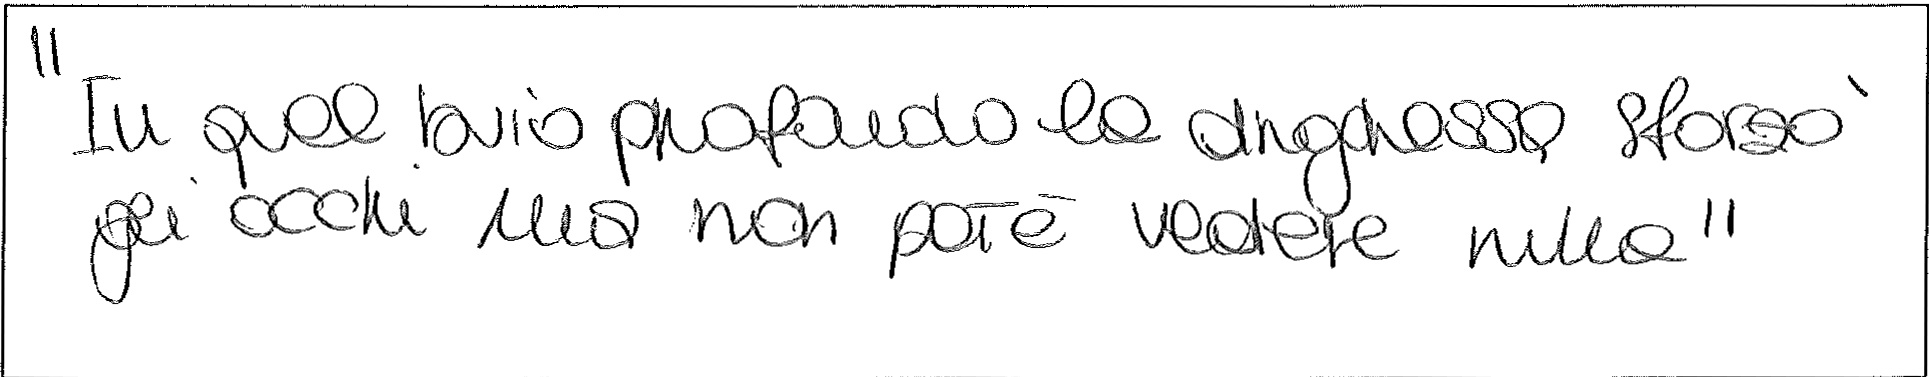 "In quel buio profondo la dragonessa sforzò
gli occhi ma non potè vedere nulla"